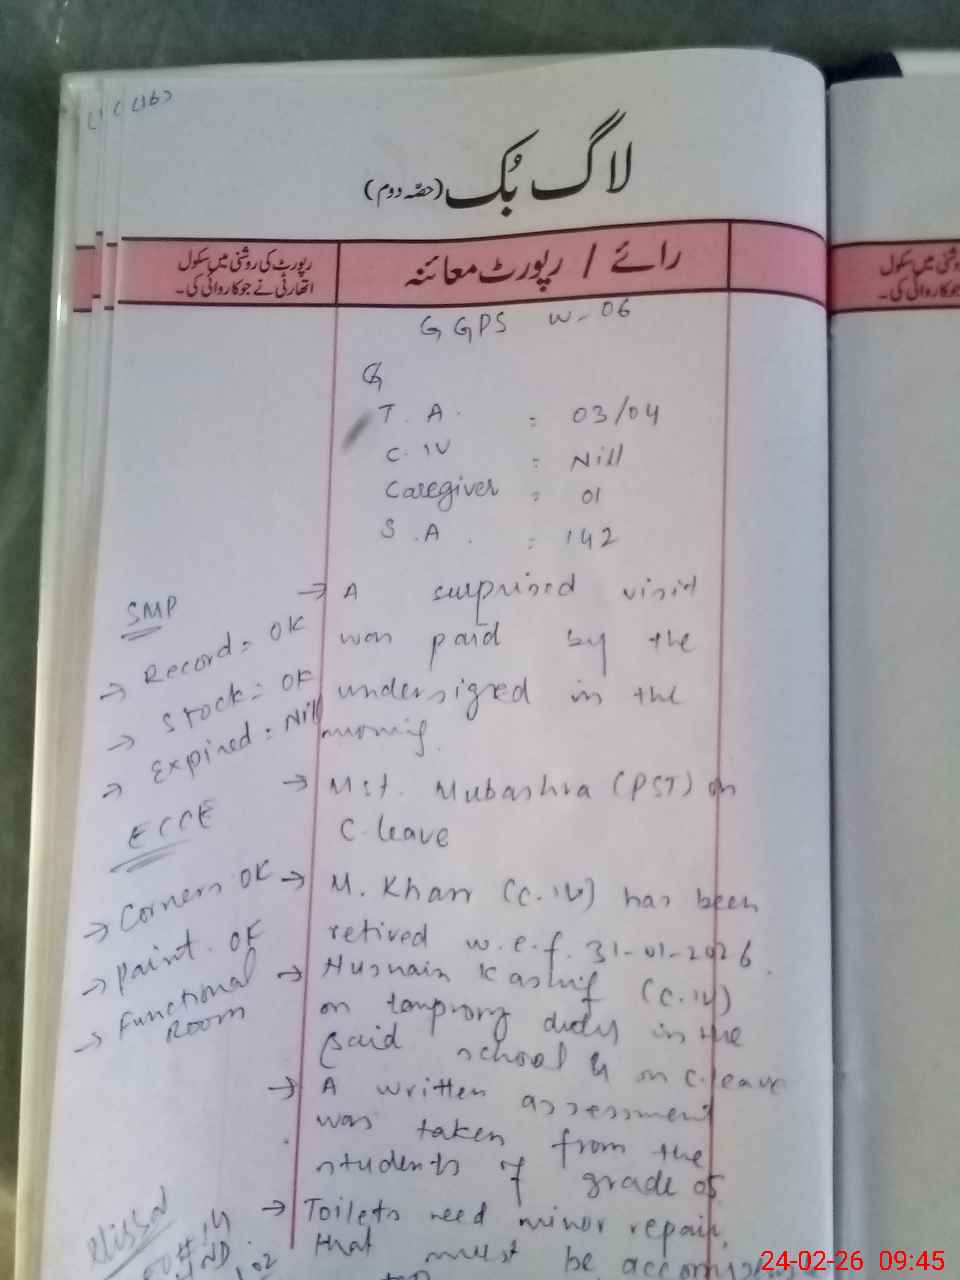 لاگ بُک (حصّہ دوم)
رپورٹ کی روشنی میں سکول
اتھارٹی نے جو کاروائی کی۔
رائے / رپورٹ معائنہ
GGPS W-06
T.A. = 03/04
C.IV = Nill
Caregiver = 01
S.A. = 142
→ A surprised visit
was paid by the
undersigned in the
→ Mst. Mubashra (PST) on
C.leave
→ M. Khan (C.IV) has been
retired w.e.f. 31-01-2026.
→ Husnain Kashif (C.IV)
on temprory duty in the
said school & on C.leave
→ A written assessment
was taken from the
students of grade 05
→ Toilets need minor repair,
that must be
SMP
→ Record = OK
→ Stock = OK
→ Expired = Nill
ECCE
→ Corners OK
→ paint. OK
→ Functional
Room
روشنی میں سکول
جو کاروائی کی۔
24-02-26 09:45